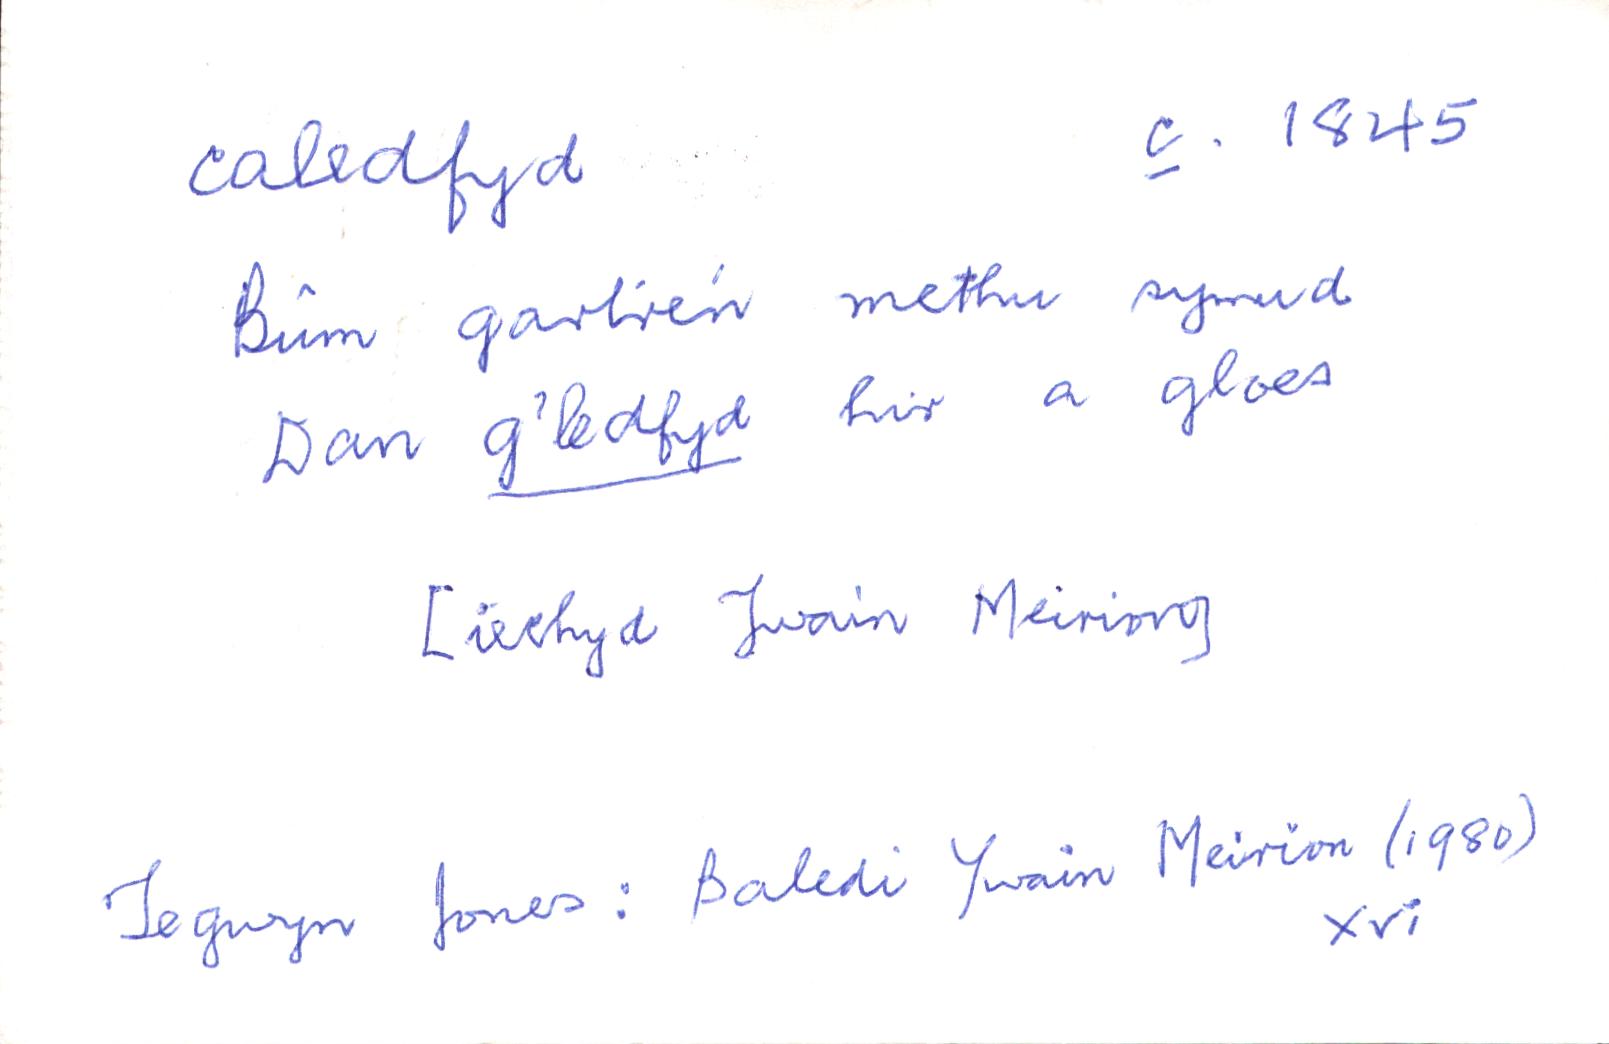 caledfyd c. 1845
Bûm gartre'n methu symud
Dan g'ledfyd hir a gloes
[iechyd Ywain Meirion]
Tegwyn Jones: Baledi Ywain Meirion (1980)
xvi